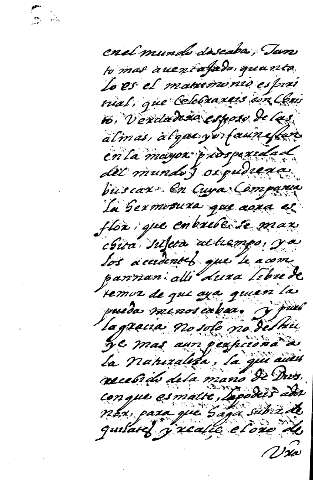 en el mundo deseaba, Tan
to mas aventajado, quanto
lo es el matrimonio espiri
tual, que Celebrareis con Chris
to, Verdadero esposo de las
almas, al que yo (aun estan
en la mayor prosperidad
del mundo) os pudiera
buscar. En Cuya Compania
la hermosura que aora es
flor, que en brebe se mar
chita sujeta al tiempo, y a
los accidentes que le acom
pannan: alli dura libre de
temor de que aya quien la
pueda menoscabar. y pues
la gracia no solo no destru
ye mas aun perficiona a
la Naturaleza, la que aveis
recebido de la mano de Dios,
con que esmalte, la podeis ador
nar, para que haga subir de
quilates y realce el oro de
Vra